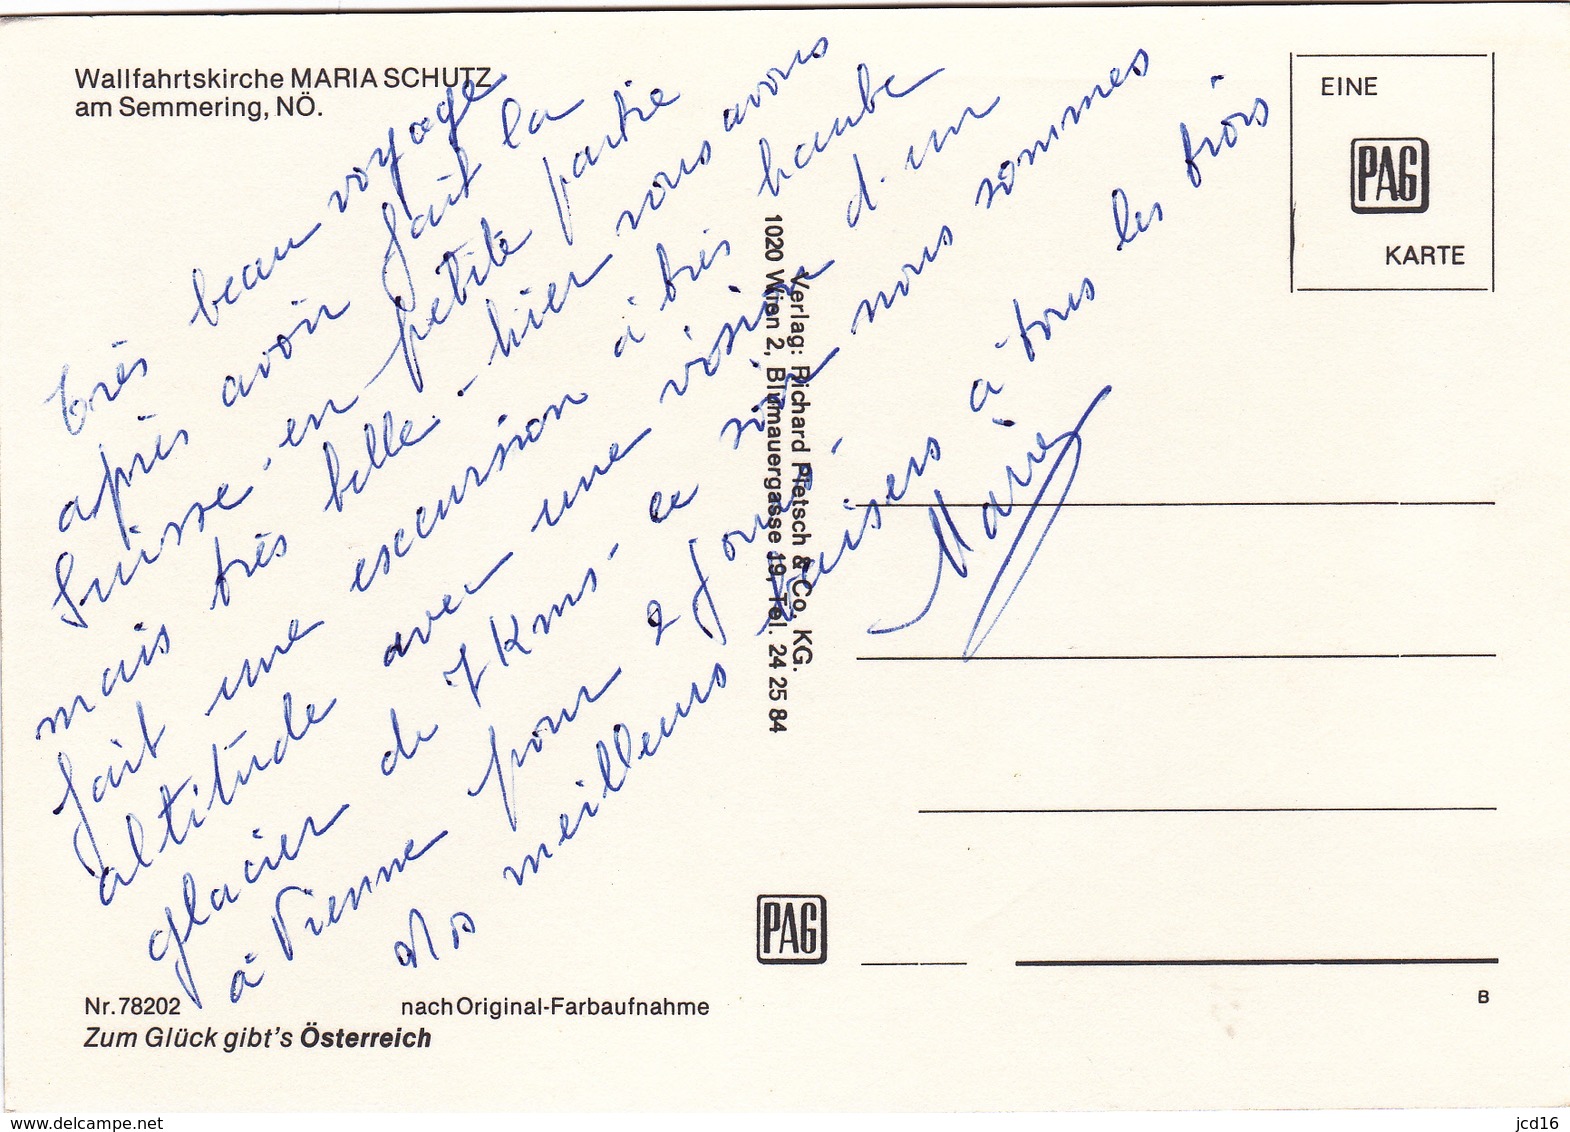 Wallfahrtskirche MARIA SCHUTZ
am Semmering, NÖ.
très beau voyage
après avoir fait la
Suisse - en petite partie
mais très belle - hier nous avons
fait une excursion à très haute
altitude avec une vision d'un
glacier de 7 Kms - ce soir nous sommes
à Vienne pour 2 jours -
Nos meilleurs baisers à tous les trois
Marie
Verlag: Richard Pietsch & Co, KG.
1020 Wien 2, Blumauergasse 19, Tel. 24 25 84
EINE
PAG
KARTE
PAG
Nr. 78202 nach Original-Farbaufnahme
Zum Glück gibt's Österreich
B
www.delcampe.net
jcd16